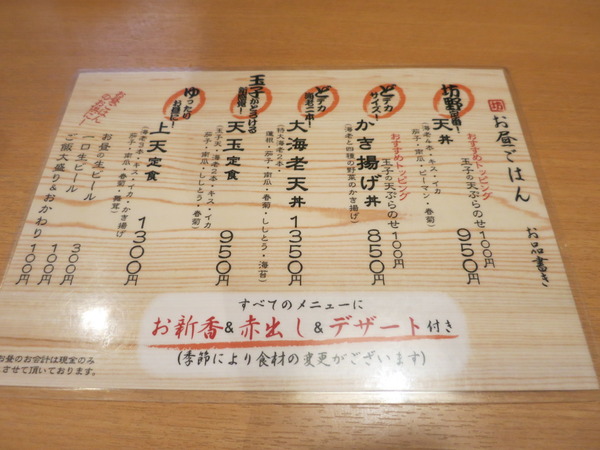 坊
お昼ごはん
お品書き
坊野定番!
天丼
(海老4本・キス・イカ
茄子・南瓜・ピーマン・春菊)
950円
おすすめトッピング
玉子の天ぷらのせ100円
どデカ
サイズ!
かき揚げ丼
(海老と四種の野菜のかき揚げ)
850円
おすすめトッピング
玉子の天ぷらのせ100円
どデカ
海老二本!
大海老天丼
(特大海老2本・
蓮根・茄子・南瓜・春菊・ししとう・海苔)
1350円
玉子がとろける
天玉定食
(玉子天・海老2本・キス・イカ
茄子・南瓜・ししとう・春菊)
950円
ゆったりの
お昼に!
上天定食
(海老3本・キス・イカ・かき揚げ
茄子・南瓜・春菊・舞茸)
1300円
お昼の生ビール
300円
一口生ビール
100円
ご飯大盛り&おかわり
100円
すべてのメニューに
お新香&赤出し&デザート付き
(季節により食材の変更がございます)
お昼のお会計は現金のみ
させて頂いております。